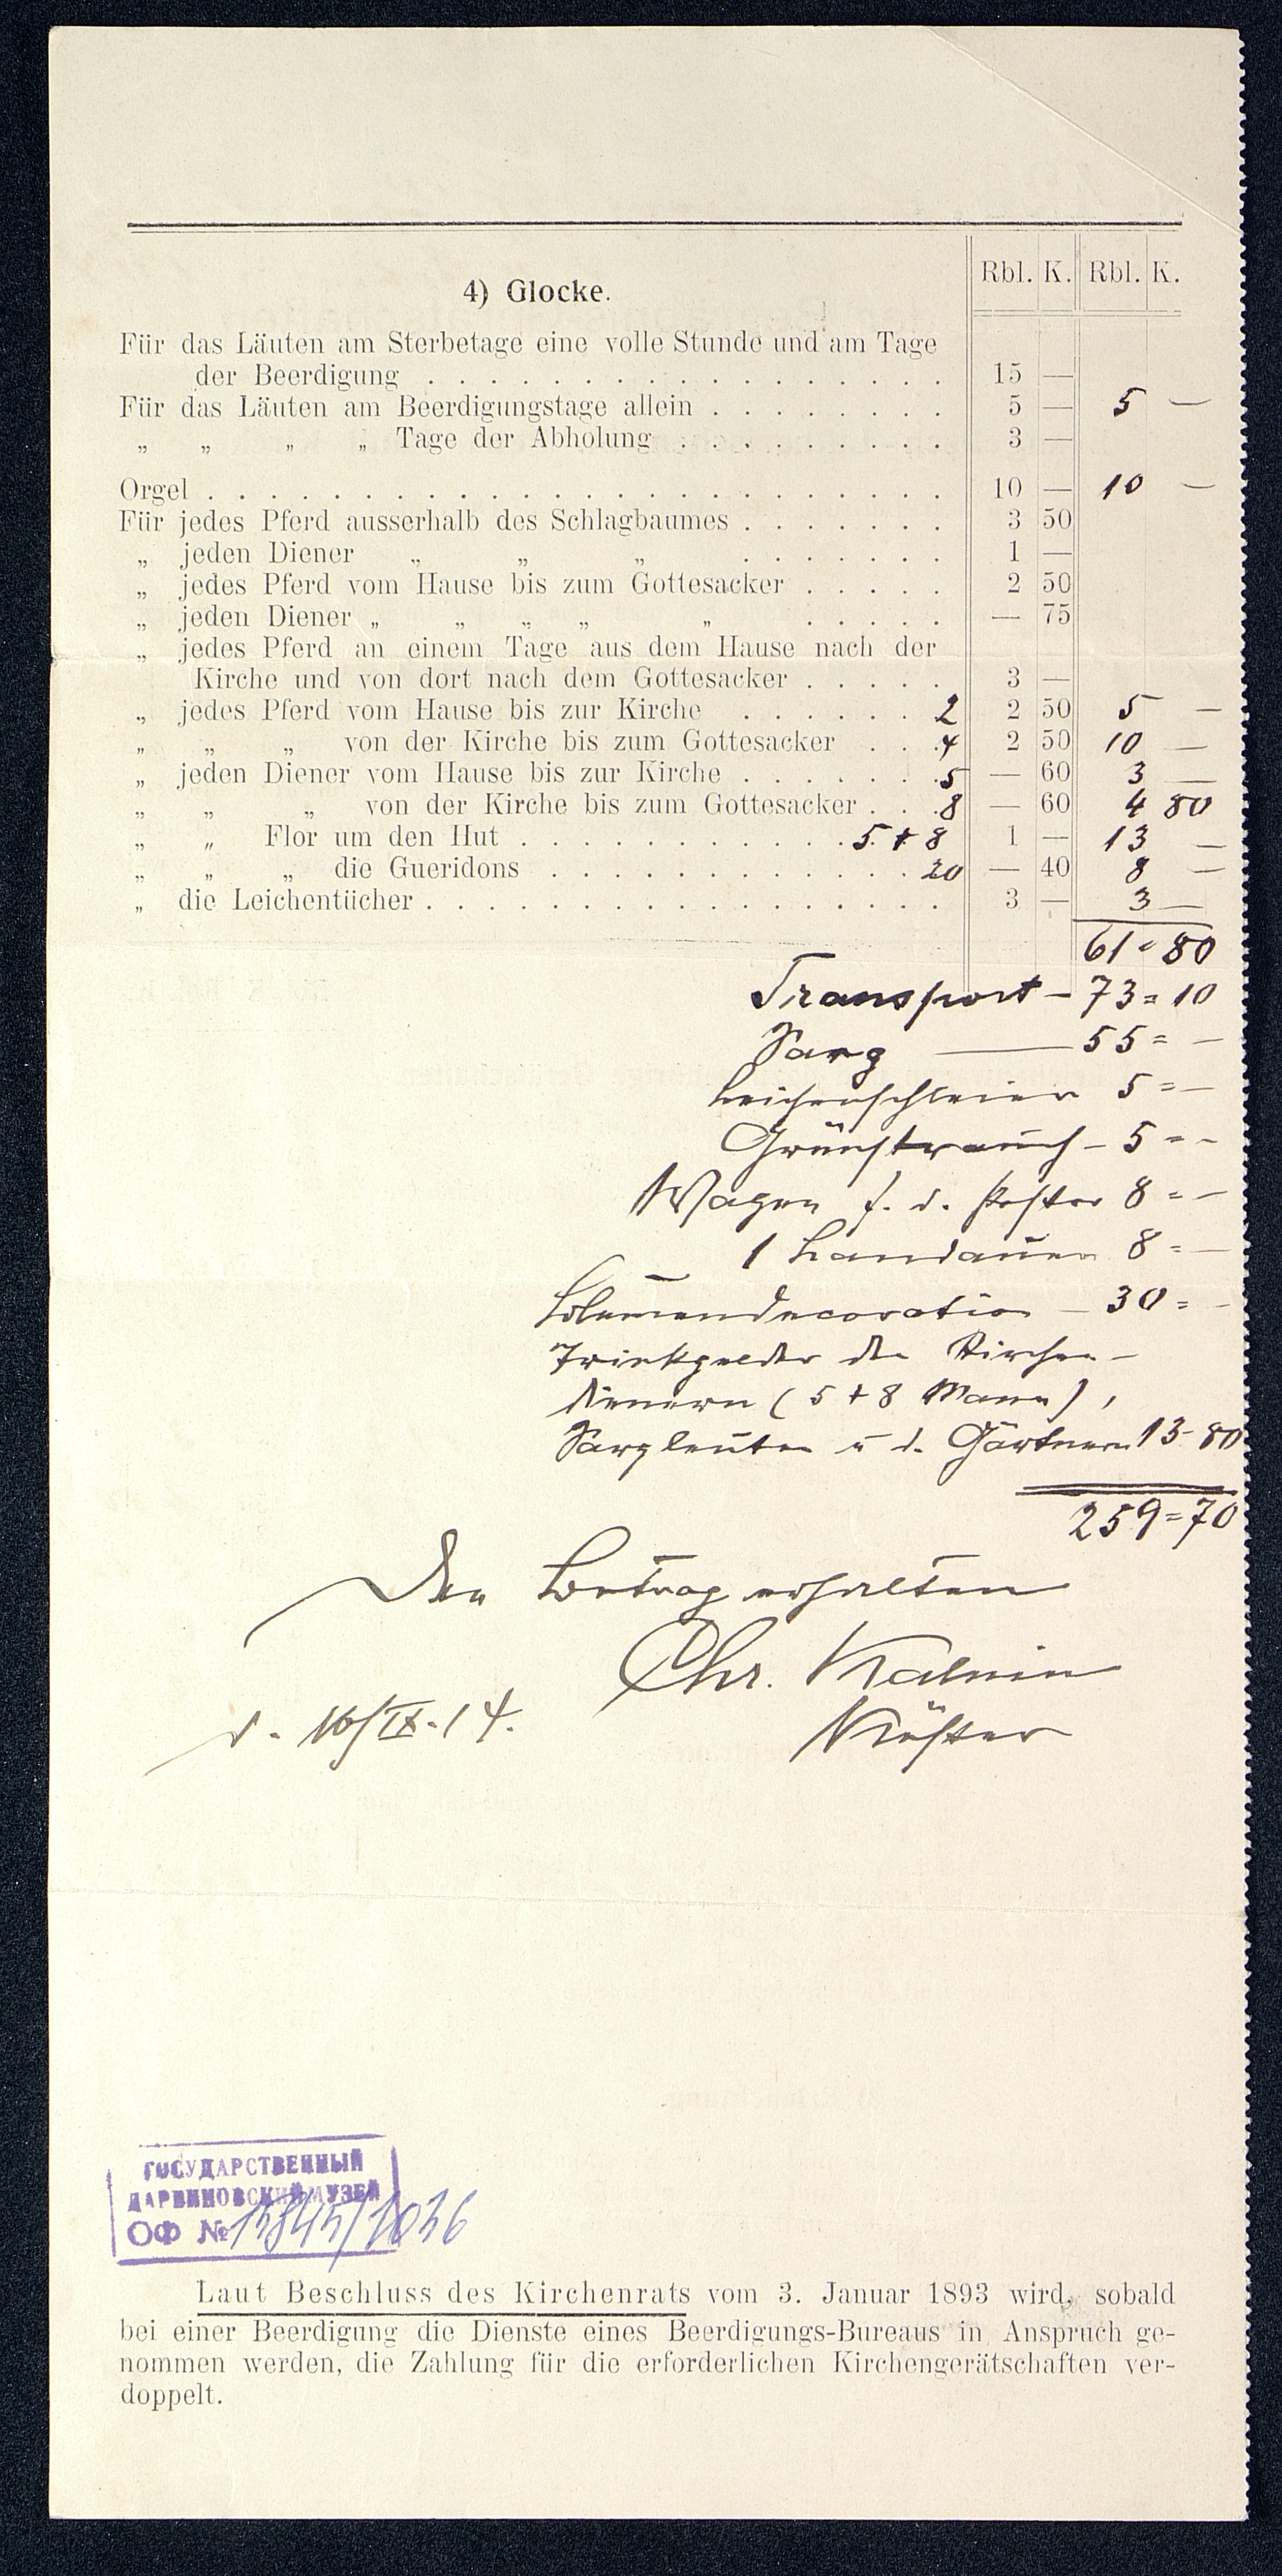 Rbl. K. Rbl. K.
4) Glocke.
Für das Läuten am Sterbetage eine volle Stunde und am Tage
der Beerdigung . . . . . . . . . . . . . . . . . 15 —
Für das Läuten am Beerdigungstage allein . . . . . . . . 5 — 5 —
„ „ „ „ Tage der Abholung . . . . . . . . . 3 —
Orgel . . . . . . . . . . . . . . . . . . . . . . . . 10 — 10 —
Für jedes Pferd ausserhalb des Schlagbaumes . . . . . . . 3 50
„ jeden Diener „ „ „ . . . . . . . 1 —
„ jedes Pferd vom Hause bis zum Gottesacker . . . . . 2 50
„ jeden Diener „ „ „ „ „ . . . . . — 75
„ jedes Pferd an einem Tage aus dem Hause nach der
Kirche und von dort nach dem Gottesacker . . . . . 3 —
„ jedes Pferd vom Hause bis zur Kirche . . . . . . 2 2 50 5 —
„ „ „ von der Kirche bis zum Gottesacker . . . 4 2 50 10 —
„ jeden Diener vom Hause bis zur Kirche . . . . . . . 5 — 60 3 —
„ „ „ von der Kirche bis zum Gottesacker . . . 8 — 60 4 80
„ „ Flor um den Hut . . . . . . . . . . . 5 + 8 1 — 13 —
„ „ „ die Gueridons . . . . . . . . . . . . 20 — 40 8 —
„ die Leichentücher . . . . . . . . . . . . . . . . . 3 — 3 —
61 = 80
Transport — 73 = 10
Sarg — 55 = —
Leichenschleier 5 = —
Grünstrauch — 5 = —
Wagen f. d. Pastor 8 = —
1 Landauer 8 = —
Blumendecoration — 30 = —
Trinkgelder den Kirchen-
dienern (5 + 8 Mann),
Sargleuten u d. Gärtnern 13 - 80
259 = 70
Den Betrag erhalten
Chr. Kalnin
d. 16/IX. 14.
Küster
ГОСУДАРСТВЕННЫЙ
ДАРВИНОВСКИЙ МУЗЕЙ
ОФ №
Laut Beschluss des Kirchenrats vom 3. Januar 1893 wird, sobald
bei einer Beerdigung die Dienste eines Beerdigungs-Bureaus in Anspruch ge-
nommen werden, die Zahlung für die erforderlichen Kirchengerätschaften ver-
doppelt.